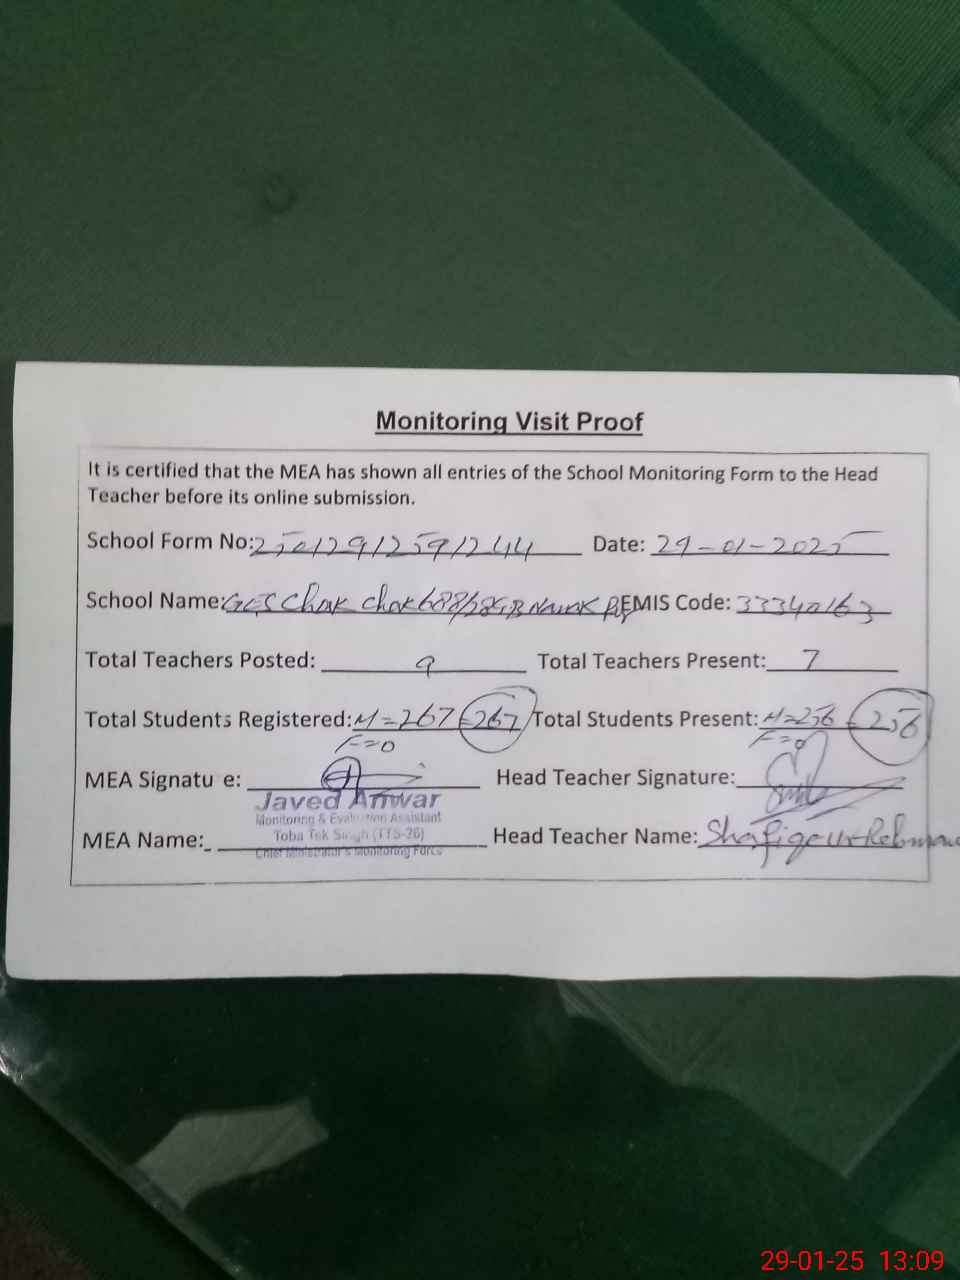 Monitoring Visit Proof
It is certified that the MEA has shown all entries of the School Monitoring Form to the Head
Teacher before its online submission.
School Form No: 25012912591244 Date: 29-01-2025
School Name: GES Chak Chak 688/ Nanak EMIS Code: 33340163
Total Teachers Posted: 9 Total Teachers Present: 7
Total Students Registered: M=267 =267 Total Students Present: M=256 = 256
F=0 F=0
MEA Signatu e: Head Teacher Signature:
Javed Anwar
Monitoring & Evaluation Assistant
Toba Tek Singh (TTS-26)
MEA Name: Head Teacher Name: Shafiq ur Rehman
Chief Minister's Monitoring Force
29-01-25 13:09